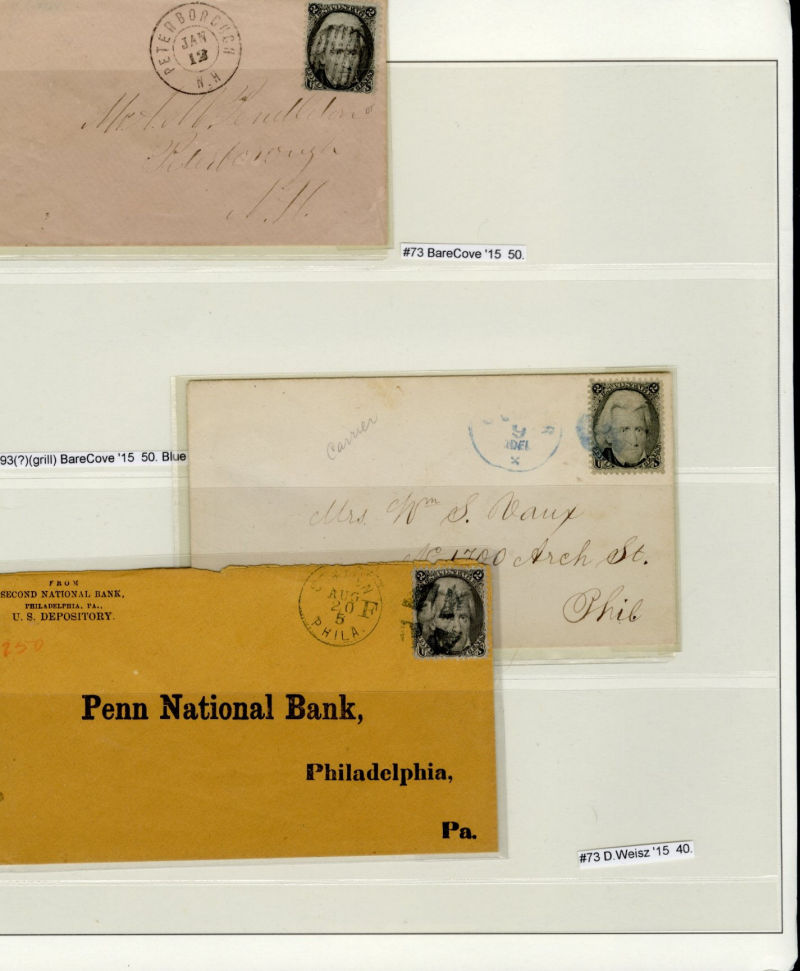 PETERBOROUGH
JAN
12
N.H
2 2
U S
Peterborough
N.H.
#73 BareCove '15 50.
Carrier
2 2
U S
93(?)(grill) BareCove '15 50. Blue
Mrs. Wm S. Vaux
No 1700 Arch St.
Phil
FROM
SECOND NATIONAL BANK,
PHILADELPHIA, PA.,
U. S. DEPOSITORY.
250
AUG
20
5
F
PHILA.
2 2
U S
Penn National Bank,
Philadelphia,
Pa.
#73 D.Weisz '15 40.